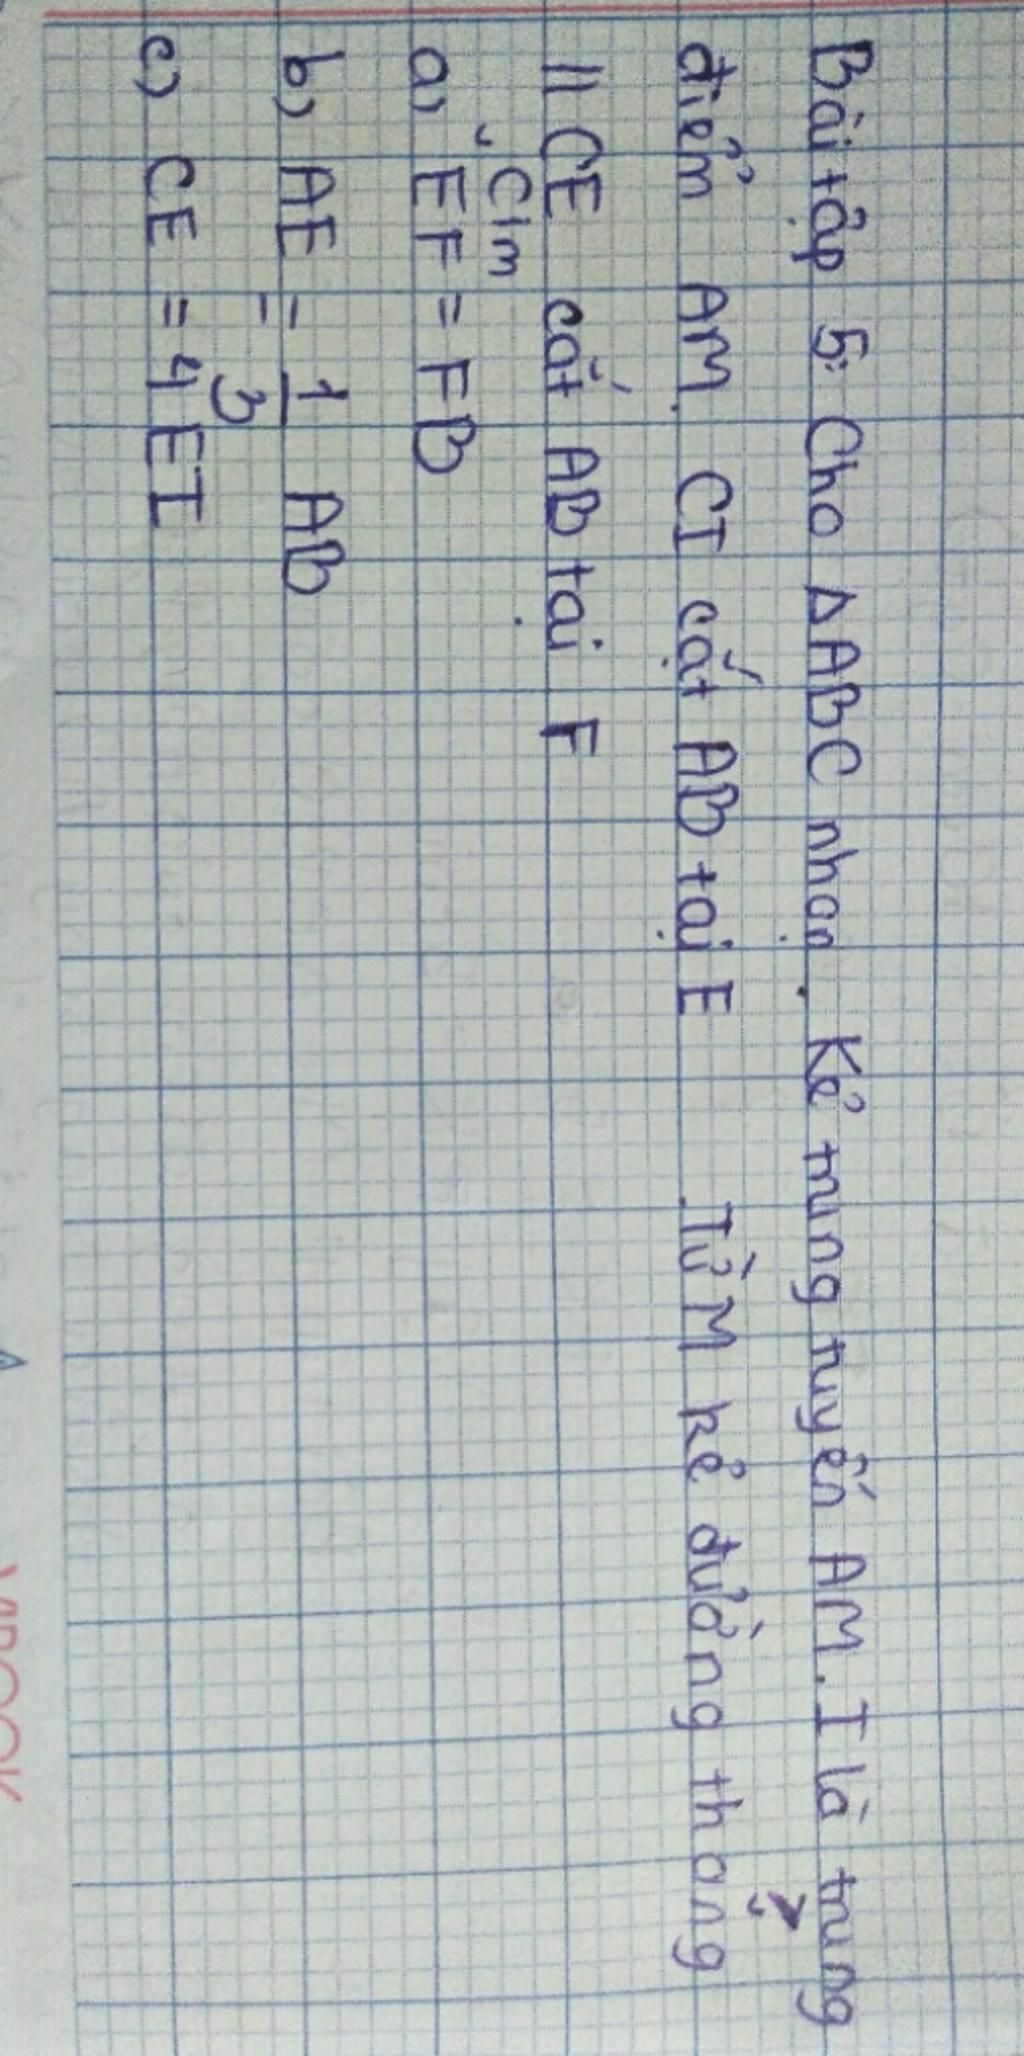 Bài tập 5: Cho ΔABC nhọn. Kẻ trung tuyến AM. I là trung
điểm AM. CI cắt AB tại E Từ M kẻ đường thẳng
// CE cắt AB tại F
Cm
a) EF = FB
b) AE = 1/3 AB
c) CE = 4 EI